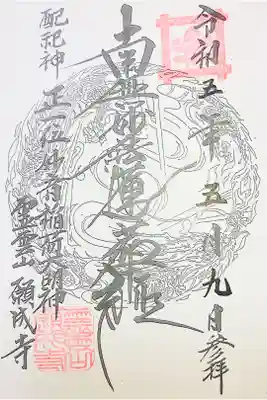 令和五年五月九日参拝
南無妙法蓮華経
配祀神 正一位妙稲荷大明神
霊雲山 願成寺